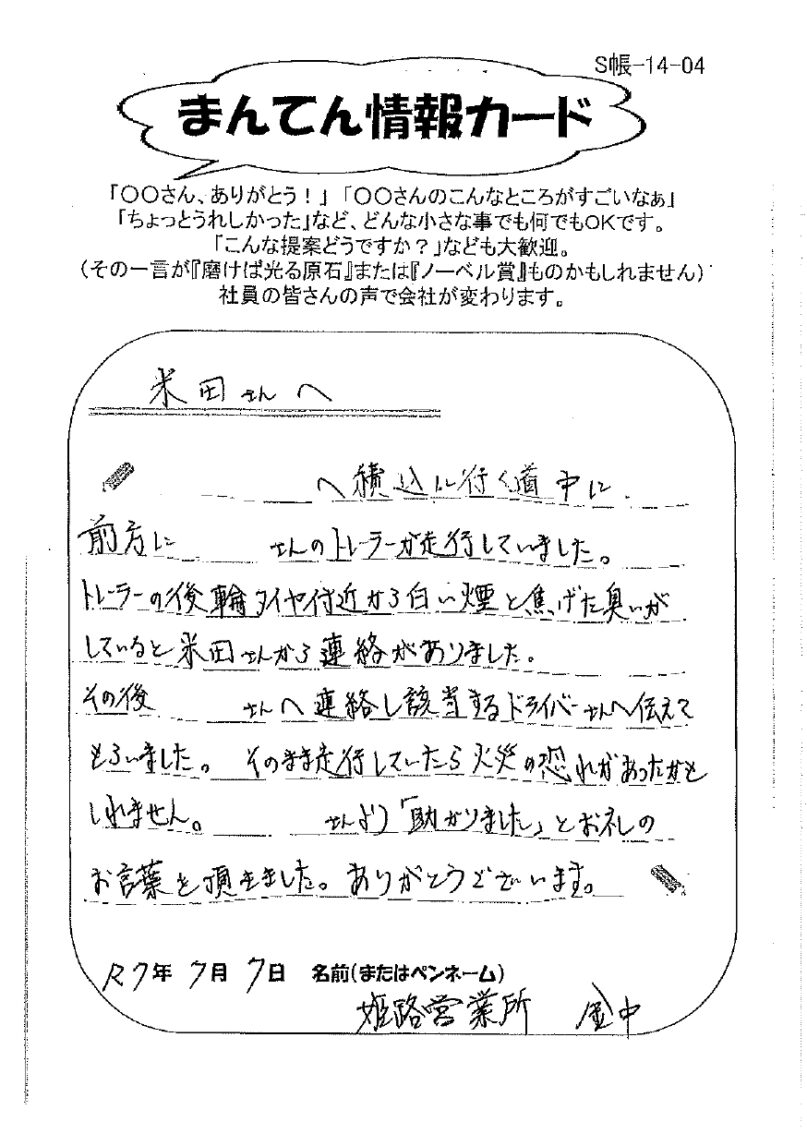 S帳-14-04
まんてん情報カード
「〇〇さん、ありがとう！」「〇〇さんのこんなところがすごいなぁ」
「ちょっとうれしかった」など、どんな小さな事でも何でもOKです。
「こんな提案どうですか？」なども大歓迎。
(その一言が『磨けば光る原石』または『ノーベル賞』ものかもしれません)
社員の皆さんの声で会社が変わります。
米田さんへ
へ積込に行く道中に
前方に さんのトレーラーが走行していました。
トレーラーの後輪タイヤ付近から白い煙と焦げた臭いが
していると米田さんから連絡がありました。
その後 さんへ連絡し該当するドライバーさんへ伝えて
もらいました。そのまま走行していたら火災の恐れがあったかも
しれません。 さんより「助かりました」とお礼の
お言葉を頂きました。ありがとうございます。
R7年7月7日 名前(またはペンネーム)
姫路営業所 中